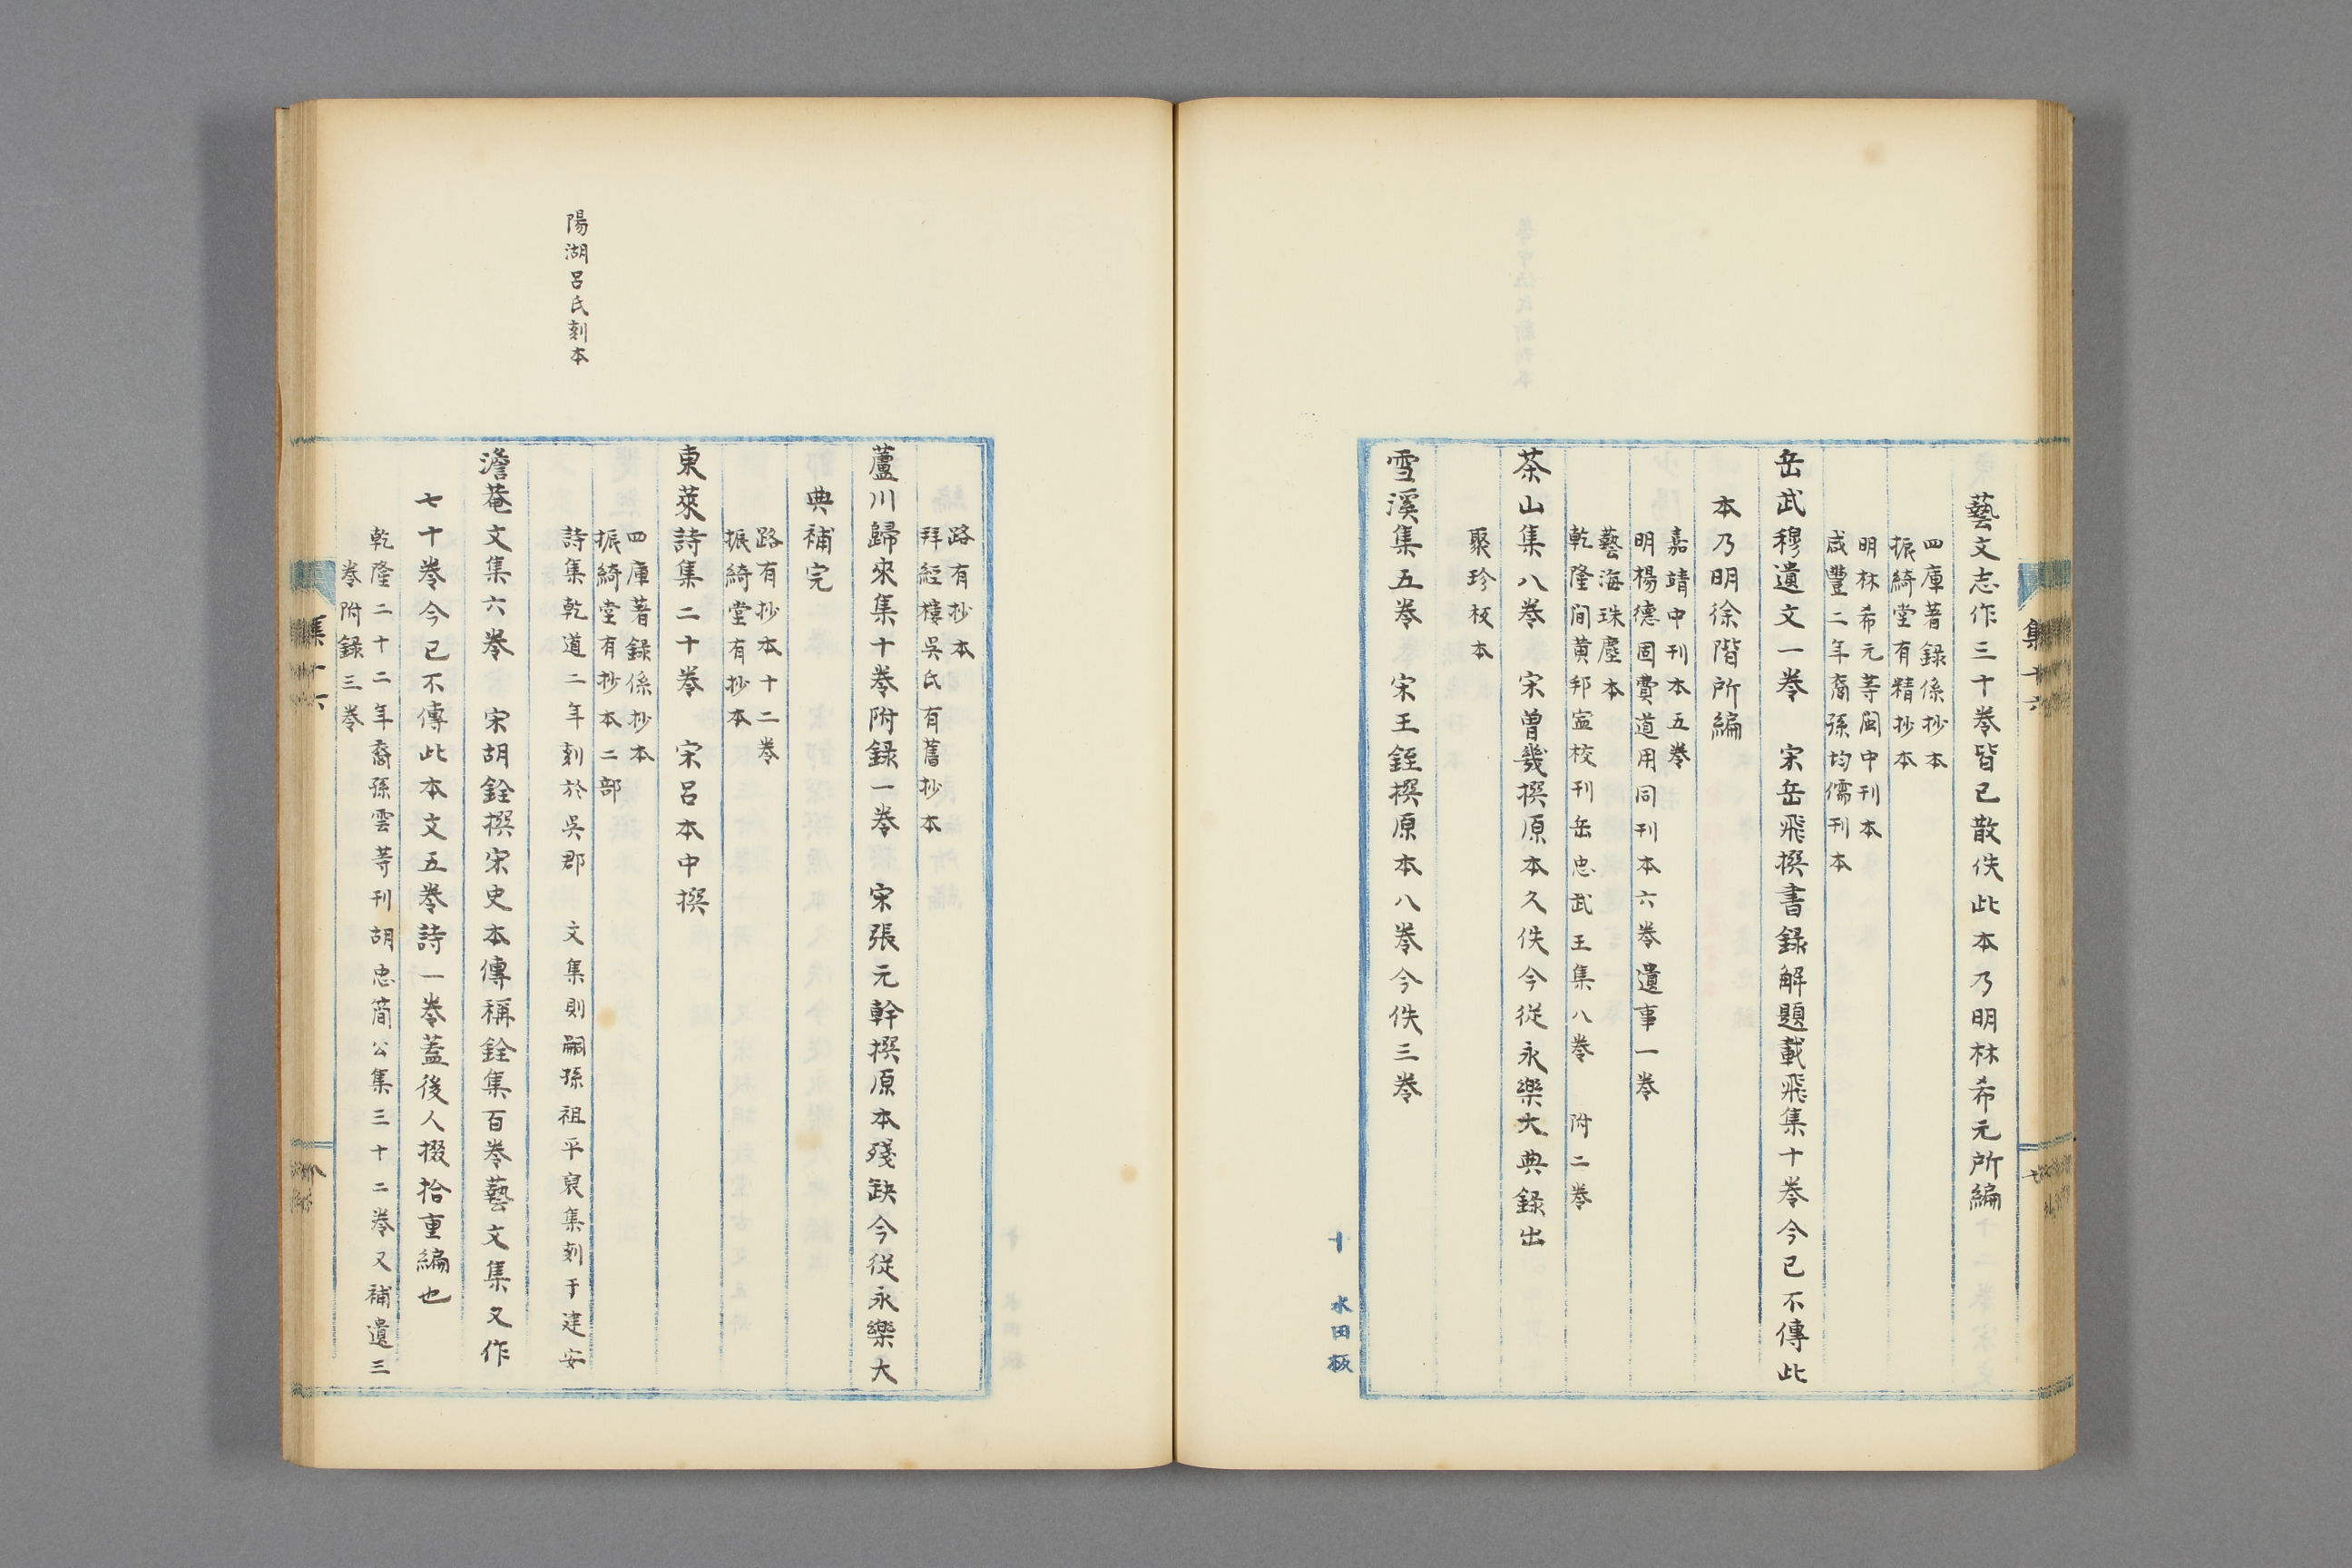 藝文志作三十卷皆已散佚此本乃明林希元所編
四庫著錄係抄本
振綺堂有精抄本
明林希元等閩中刊本
咸豐二年裔孫均儒刊本
岳武穆遺文一卷　宋岳飛撰書錄解題載飛集十卷今已不傳此
本乃明徐階所編
嘉靖中刊本五卷
明楊德固費道用同刊本六卷遺事一卷
藝海珠塵本
乾隆間黃邦寍校刊岳忠武王集八卷　附二卷
茶山集八卷　宋曾幾撰原本久佚今從永樂大典錄出
聚珍板本
雪溪集五卷　宋王銍撰原本八卷今佚三卷
集十六
七
十　水田板
路有抄本
拜經樓吳氏有舊抄本
蘆川歸來集十卷附錄一卷　宋張元幹撰原本殘缺今從永樂大
典補完
路有抄本十二卷
振綺堂有抄本
東萊詩集二十卷　宋呂本中撰
四庫著錄係抄本
振綺堂有抄本二部
陽湖呂氏刻本
詩集乾道二年刻於吳郡　文集則嗣孫祖平裒集刻于建安
澹菴文集六卷　宋胡銓撰宋史本傳稱銓集百卷藝文集又作
七十卷今已不傳此本文五卷詩一卷蓋後人掇拾重編也
乾隆二十二年裔孫雲等刊胡忠簡公集三十二卷又補遺三
卷附錄三卷
集十六
八